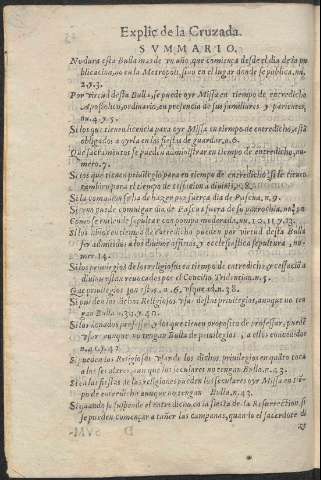 Explic de la Cruzada.
SVMMARIO.
No dura esta Bulla mas de vn año, que comiença desde el dia de la pu
blicacion, no en la Metropoli, sino en el lugar donde se publica, nu.
2. y. 3.
Por virtud desta Bulla, se puede oyr Missa en tiempo de entredicho
Apostolico, ordinario, en presencia de sus familiares y parientes,
nu. 4. y. 5.
Si los que tienen licencia para oyr Missa en tiempo de entredicho, está
obligados a oyrla en las fiestas de guardar, n. 6.
Que sacramentos se pueden administrar en tiempo de entredicho, nu-
mero. 7.
Si los que tienen priuilegio para en tiempo de entredicho si se
tambien para el tiempo de cessacion a diuinis, n. 8.
Si la comunion se ha de hazer por fuerça dia de Pascua, n. 9.
Si vno puede comulgar dia de Pascua fuera de su parrochia,
Como se entiende sepultar con pompa moderada, nu. 12. 13.
Si los niños en tiempo de entredicho pueden por virtud desta Bulla
ser admitidos a los diuinos officios, y ecclesiastica sepultura, nu-
mer. 14.
Si los priuilegios de los religiosos en tiempo de entredicho, y cessació a
diuinis estan reuocados por el Concilio Tridentino, n. 5.
Que priuilegios son estos, n. 6. vsque ad. n. 38.
Si pueden los dichos Religiosos vsar destos priuilegios, aunque no ten
gan Bulla n. 39. y. 40.
Si los donados professos, y los que tienen proposito de professar, puedē
vsar aunque no tengan Bulla de priuilegios, a ellos concedidos
n. 40. y. 42.
Si pueden los Religiosos vsar de los dichos priuilegios en quāto toca
a los seculares, aun que los seculares no tengan Bulla, n. 43.
Si a las fiestas de las religiones pueden los seculares oyr Missa en tiē-
po de entredicho aunque no tengan Bulla, n. 43.
Si quando se suspende el entredicho, en la fiesta de la Resurrection, si
se pueden començar a tañer las campanas, quando el sacerdote di
D
SVM-